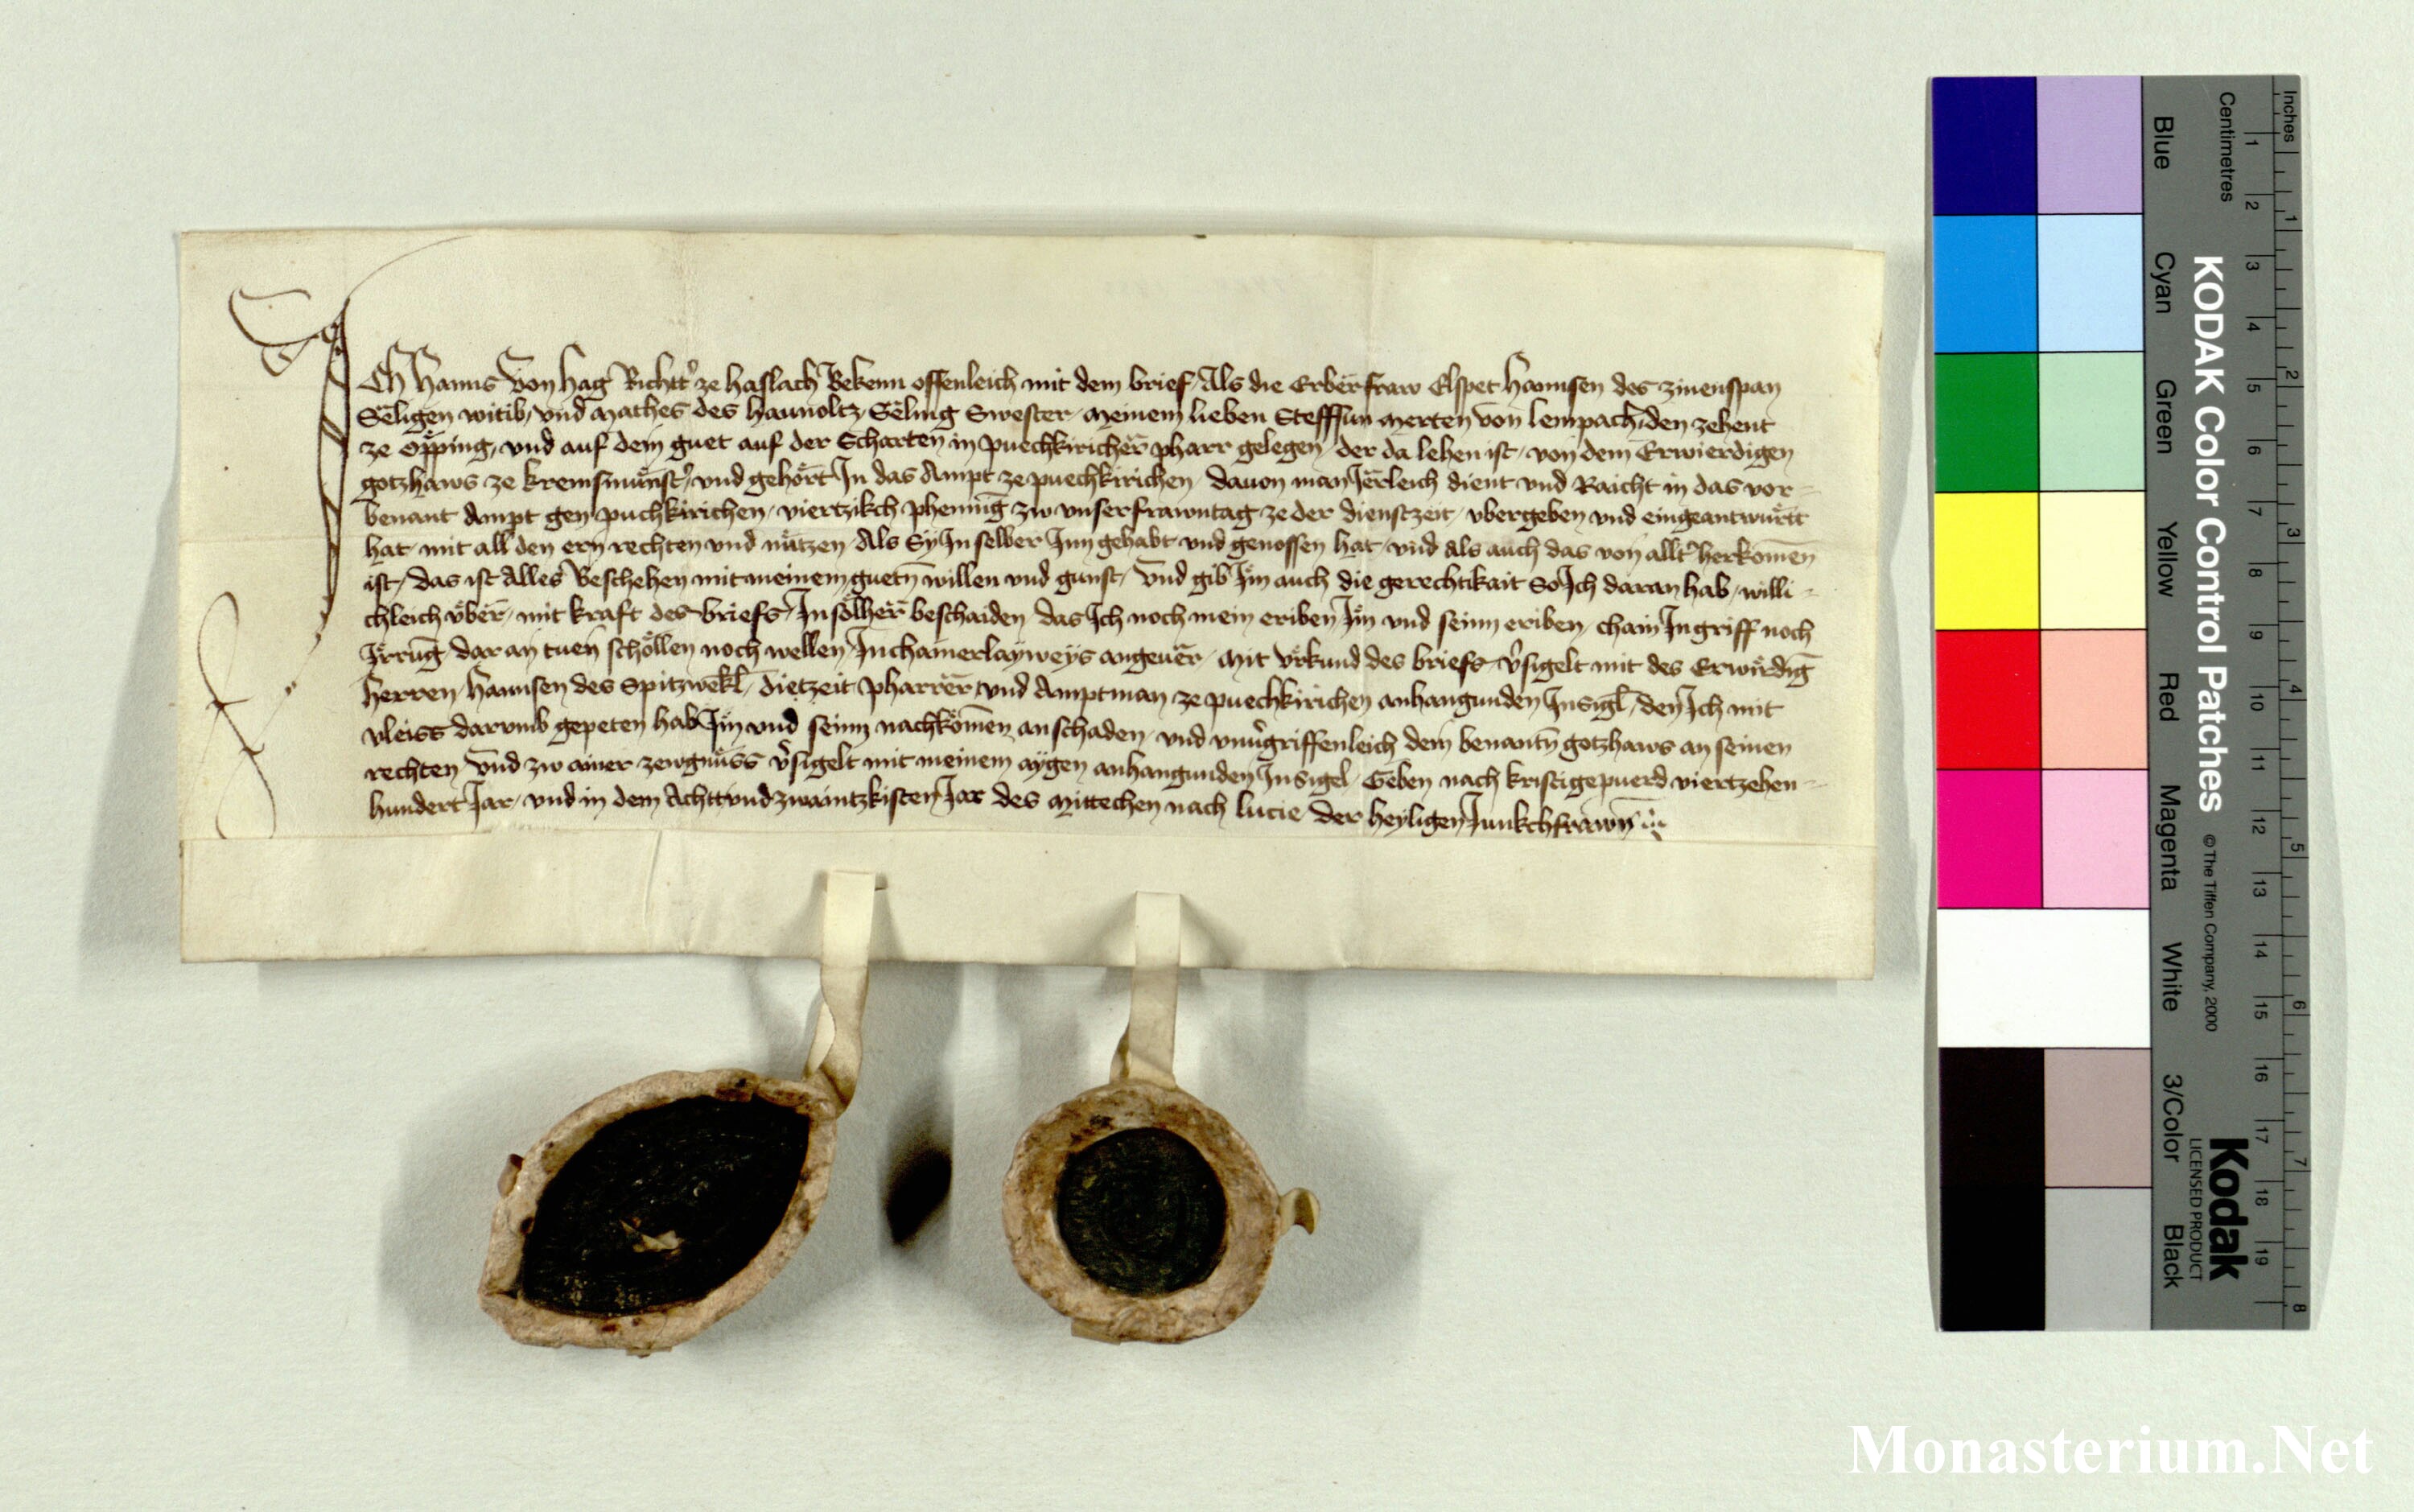 Ich Hanns von Hag Richtt' ze Haslach Bekenn offenleich mit dem brief Als die Erber fraw Elspet Hannsen des zinenspan
Seligen witib, vnd Mathes des Haunoltz Seling Swester, Meinem lieben Steffsun Merten von lempach, den zehent
ze Opping, vnd auf dem guet auf der Scharten in puechkiricher pharr gelegen, der da lehen ist, von dem Erwierdigen
gotzhaws ze kremsmünst', vnd gehört In das Ampt ze puechkirichen, dauon man Jerleich dient vnd Raicht in das vor=
benant Ampt gen puchkirichen, viertzikch phenning zw vnser frawntag ze der dienstzeit, vbergeben vnd eingeantwürtt
hat, mit all den ern rechten vnd nützen, Als Sy In selber Inn gehabt vnd genossen hat, vnd als auch das von allt' herkomen
ist, das ist alles Beschehen mit meinem guetn willen vnd gunst, vnd gib Im auch die gerechtikait So Ich daran hab, willi=
chleich über, mit kraft des briefs, In sölher beschaiden das Ich noch mein eriben Im vnd seinn eriben, chain Ingriff noch
Irrung daran tuen schöllen noch wellen In chainerlay weys angeuer, Mit vrkund des briefs v'sigelt mit des Erwirdig
Herren Hannsen des Spitzwekl, dietzeit pharrer vnd Amptman ze puechkirichen anhangunden Insigl, den Ich mit
vleiss darvmb gepeten hab Im vnd seinn nachkömen an schaden, vnd vnu'griffenleich dem benantn gotzhaws an seinen
rechten vnd zw ainer zewgnüss v'sigelt mit meinem aygen anhangunden Insigel, Geben nach kristi gepuerd viertzehen=
hundert Jar, vnd in dem Achtt vnd zwaintzkisten Jar des Mittechen nach lucie der heyligen Junkchfrawn
Inches
Centimetres
1 2 3 4 5 6 7 8
1 2 3 4 5 6 7 8 9 10 11 12 13 14 15 16 17 18 19
KODAK Color Control Patches
© The Tiffen Company, 2000
Kodak
LICENSED PRODUCT
Blue
Cyan
Green
Yellow
Red
Magenta
White
3/Color
Black
Monasterium.Net